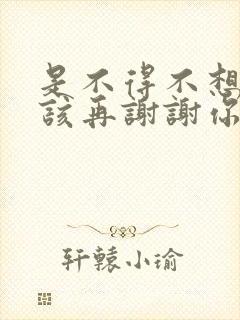 是不得不想
该再謝謝你
轩辕小瑜